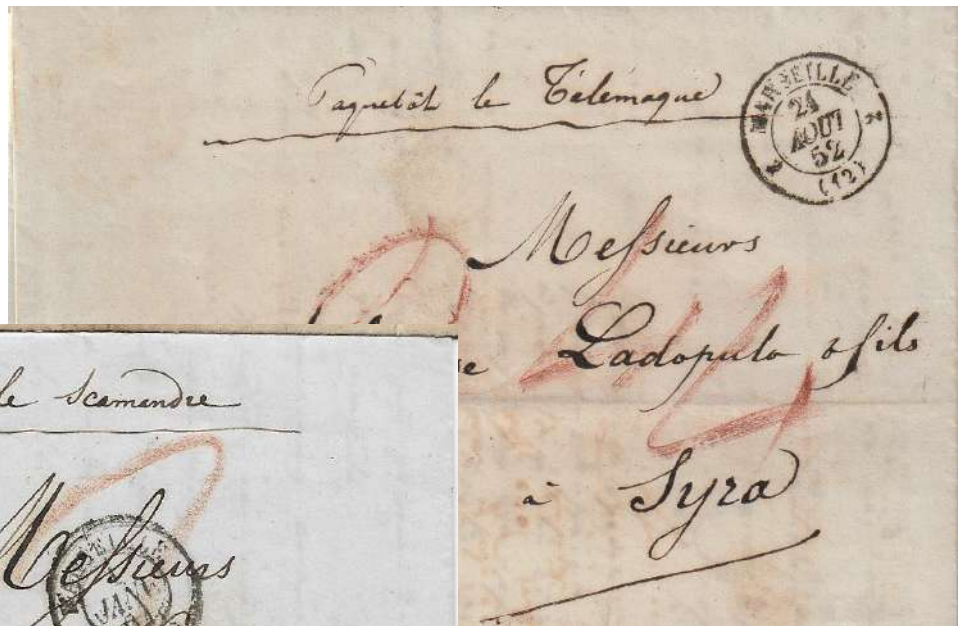 Paquebôt le Télémaque
MARSEILLE
2 2
24
AOUT
52
(12)
Messieurs
Ladopulo & fils
à Syra
le Scamandre
Messieurs
MARSEILLE
JANV